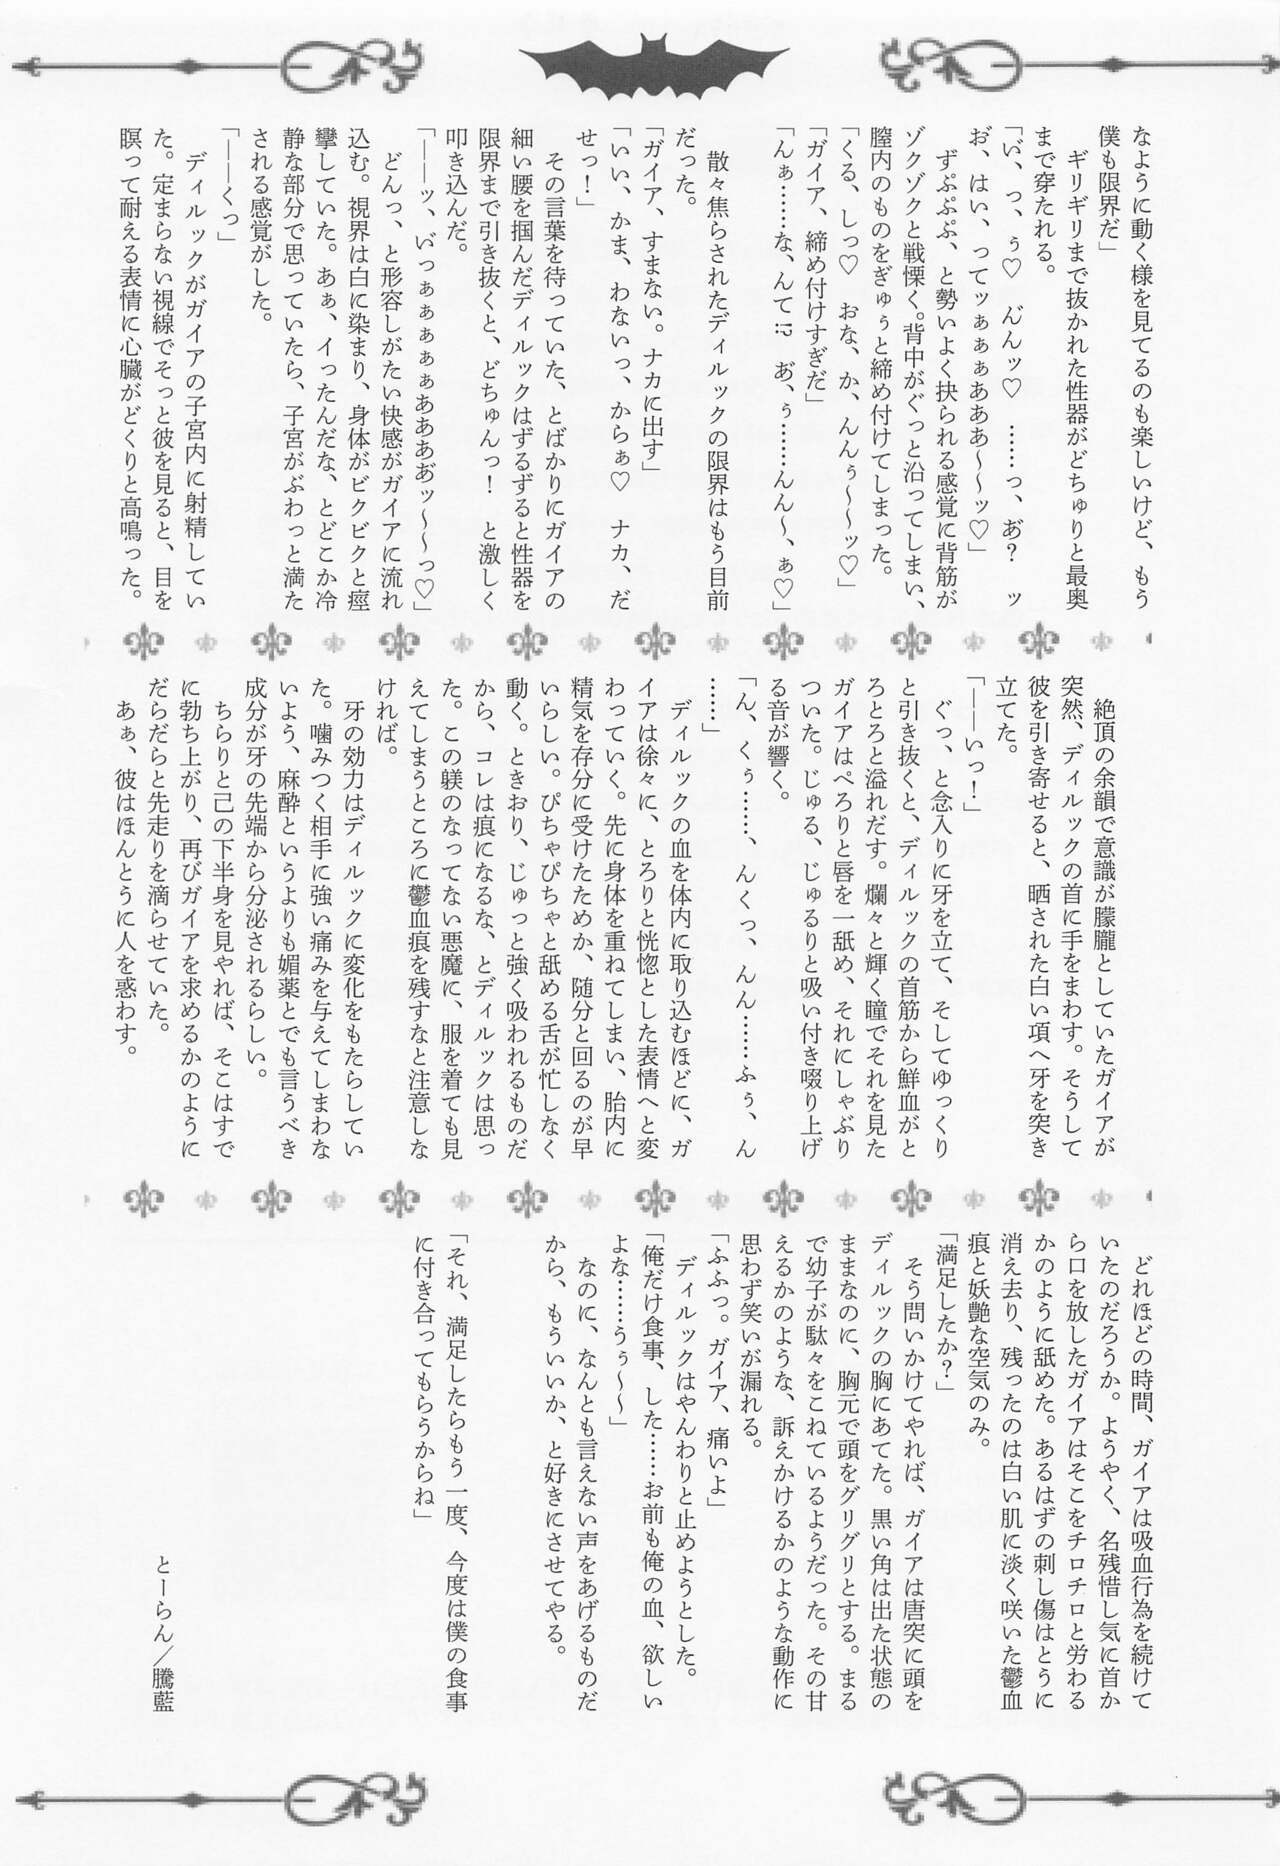 なように動く様を見てるのも楽しいけど、もう
僕も限界だ」
　ギリギリまで抜かれた性器がどちゅりと最奥
まで穿たれる。
「い゛、っ、ぅ♡　ん゛んッ♡　……っ、あ゛？　ッ
お゛、はい、ってッぁぁぁあああ～～ッ♡」
　ずぷぷぷ、と勢いよく抉られる感覚に背筋が
ゾクゾクと戦慄く。背中がぐっと沿ってしまい、
膣内のものをぎゅぅと締め付けてしまった。
「くる、しっ♡　おな、か、んんぅ～～ッ♡」
「ガイア、締め付けすぎだ」
「んぁ……な、んて⁉　あ゛、ぅ……んん～、ぁ♡」
　散々焦らされたディルックの限界はもう目前
だった。
「ガイア、すまない。ナカに出す」
「いい、かま、わないっ、からぁ♡　ナカ、だ
せっ！」
　その言葉を待っていた、とばかりにガイアの
細い腰を掴んだディルックはずるずると性器を
限界まで引き抜くと、どちゅんっ！　と激しく
叩き込んだ。
「――ッ、い゛っぁぁぁぁぁあああぢッ～～っ♡」
　どんっ、と形容しがたい快感がガイアに流れ
込む。視界は白に染まり、身体がビクビクと痙
攣していた。あぁ、イったんだな、とどこか冷
静な部分で思っていたら、子宮がぶわっと満た
される感覚がした。
「――くっ」
　ディルックがガイアの子宮内に射精してい
た。定まらない視線でそっと彼を見ると、目を
瞑って耐える表情に心臓がどくりと高鳴った。
　絶頂の余韻で意識が朦朧としていたガイアが
突然、ディルックの首に手をまわす。そうして
彼を引き寄せると、晒された白い項へ牙を突き
立てた。
「――いっ！」
　ぐっ、と念入りに牙を立て、そしてゆっくり
と引き抜くと、ディルックの首筋から鮮血がと
ろとろと溢れだす。爛々と輝く瞳でそれを見た
ガイアはぺろりと唇を一舐め、それにしゃぶり
ついた。じゅる、じゅるりと吸い付き啜り上げ
る音が響く。
「ん、くぅ……、んくっ、んん……ふぅ、ん
……」
　ディルックの血を体内に取り込むほどに、ガ
イアは徐々に、とろりと恍惚とした表情へと変
わっていく。先に身体を重ねてしまい、胎内に
精気を存分に受けたためか、随分と回るのが早
いらしい。ぴちゃぴちゃと舐める舌が忙しなく
動く。ときおり、じゅっと強く吸われるものだ
から、コレは痕になるな、とディルックは思っ
た。この躾のなってない悪魔に、服を着ても見
えてしまうところに鬱血痕を残すなと注意しな
ければ。
　牙の効力はディルックに変化をもたらしてい
た。噛みつく相手に強い痛みを与えてしまわな
いよう、麻酔というよりも媚薬とでも言うべき
成分が牙の先端から分泌されるらしい。
　ちらりと己の下半身を見やれば、そこはすで
に勃ち上がり、再びガイアを求めるかのように
だらだらと先走りを滴らせていた。
　あぁ、彼はほんとうに人を惑わす。
　どれほどの時間、ガイアは吸血行為を続けて
いたのだろうか。ようやく、名残惜し気に首か
ら口を放したガイアはそこをチロチロと労わる
かのように舐めた。あるはずの刺し傷はとうに
消え去り、残ったのは白い肌に淡く咲いた鬱血
痕と妖艶な空気のみ。
「満足したか？」
　そう問いかけてやれば、ガイアは唐突に頭を
ディルックの胸にあてた。黒い角は出た状態の
ままなのに、胸元で頭をグリグリとする。まる
で幼子が駄々をこねているようだった。その甘
えるかのような、訴えかけるかのような動作に
思わず笑いが漏れる。
「ふふっ。ガイア、痛いよ」
　ディルックはやんわりと止めようとした。
「俺だけ食事、した……お前も俺の血、欲しい
よな……うぅ～～」
　なのに、なんとも言えない声をあげるものだ
から、もういいか、と好きにさせてやる。
「それ、満足したらもう一度、今度は僕の食事
に付き合ってもらうからね」
とーらん／騰藍